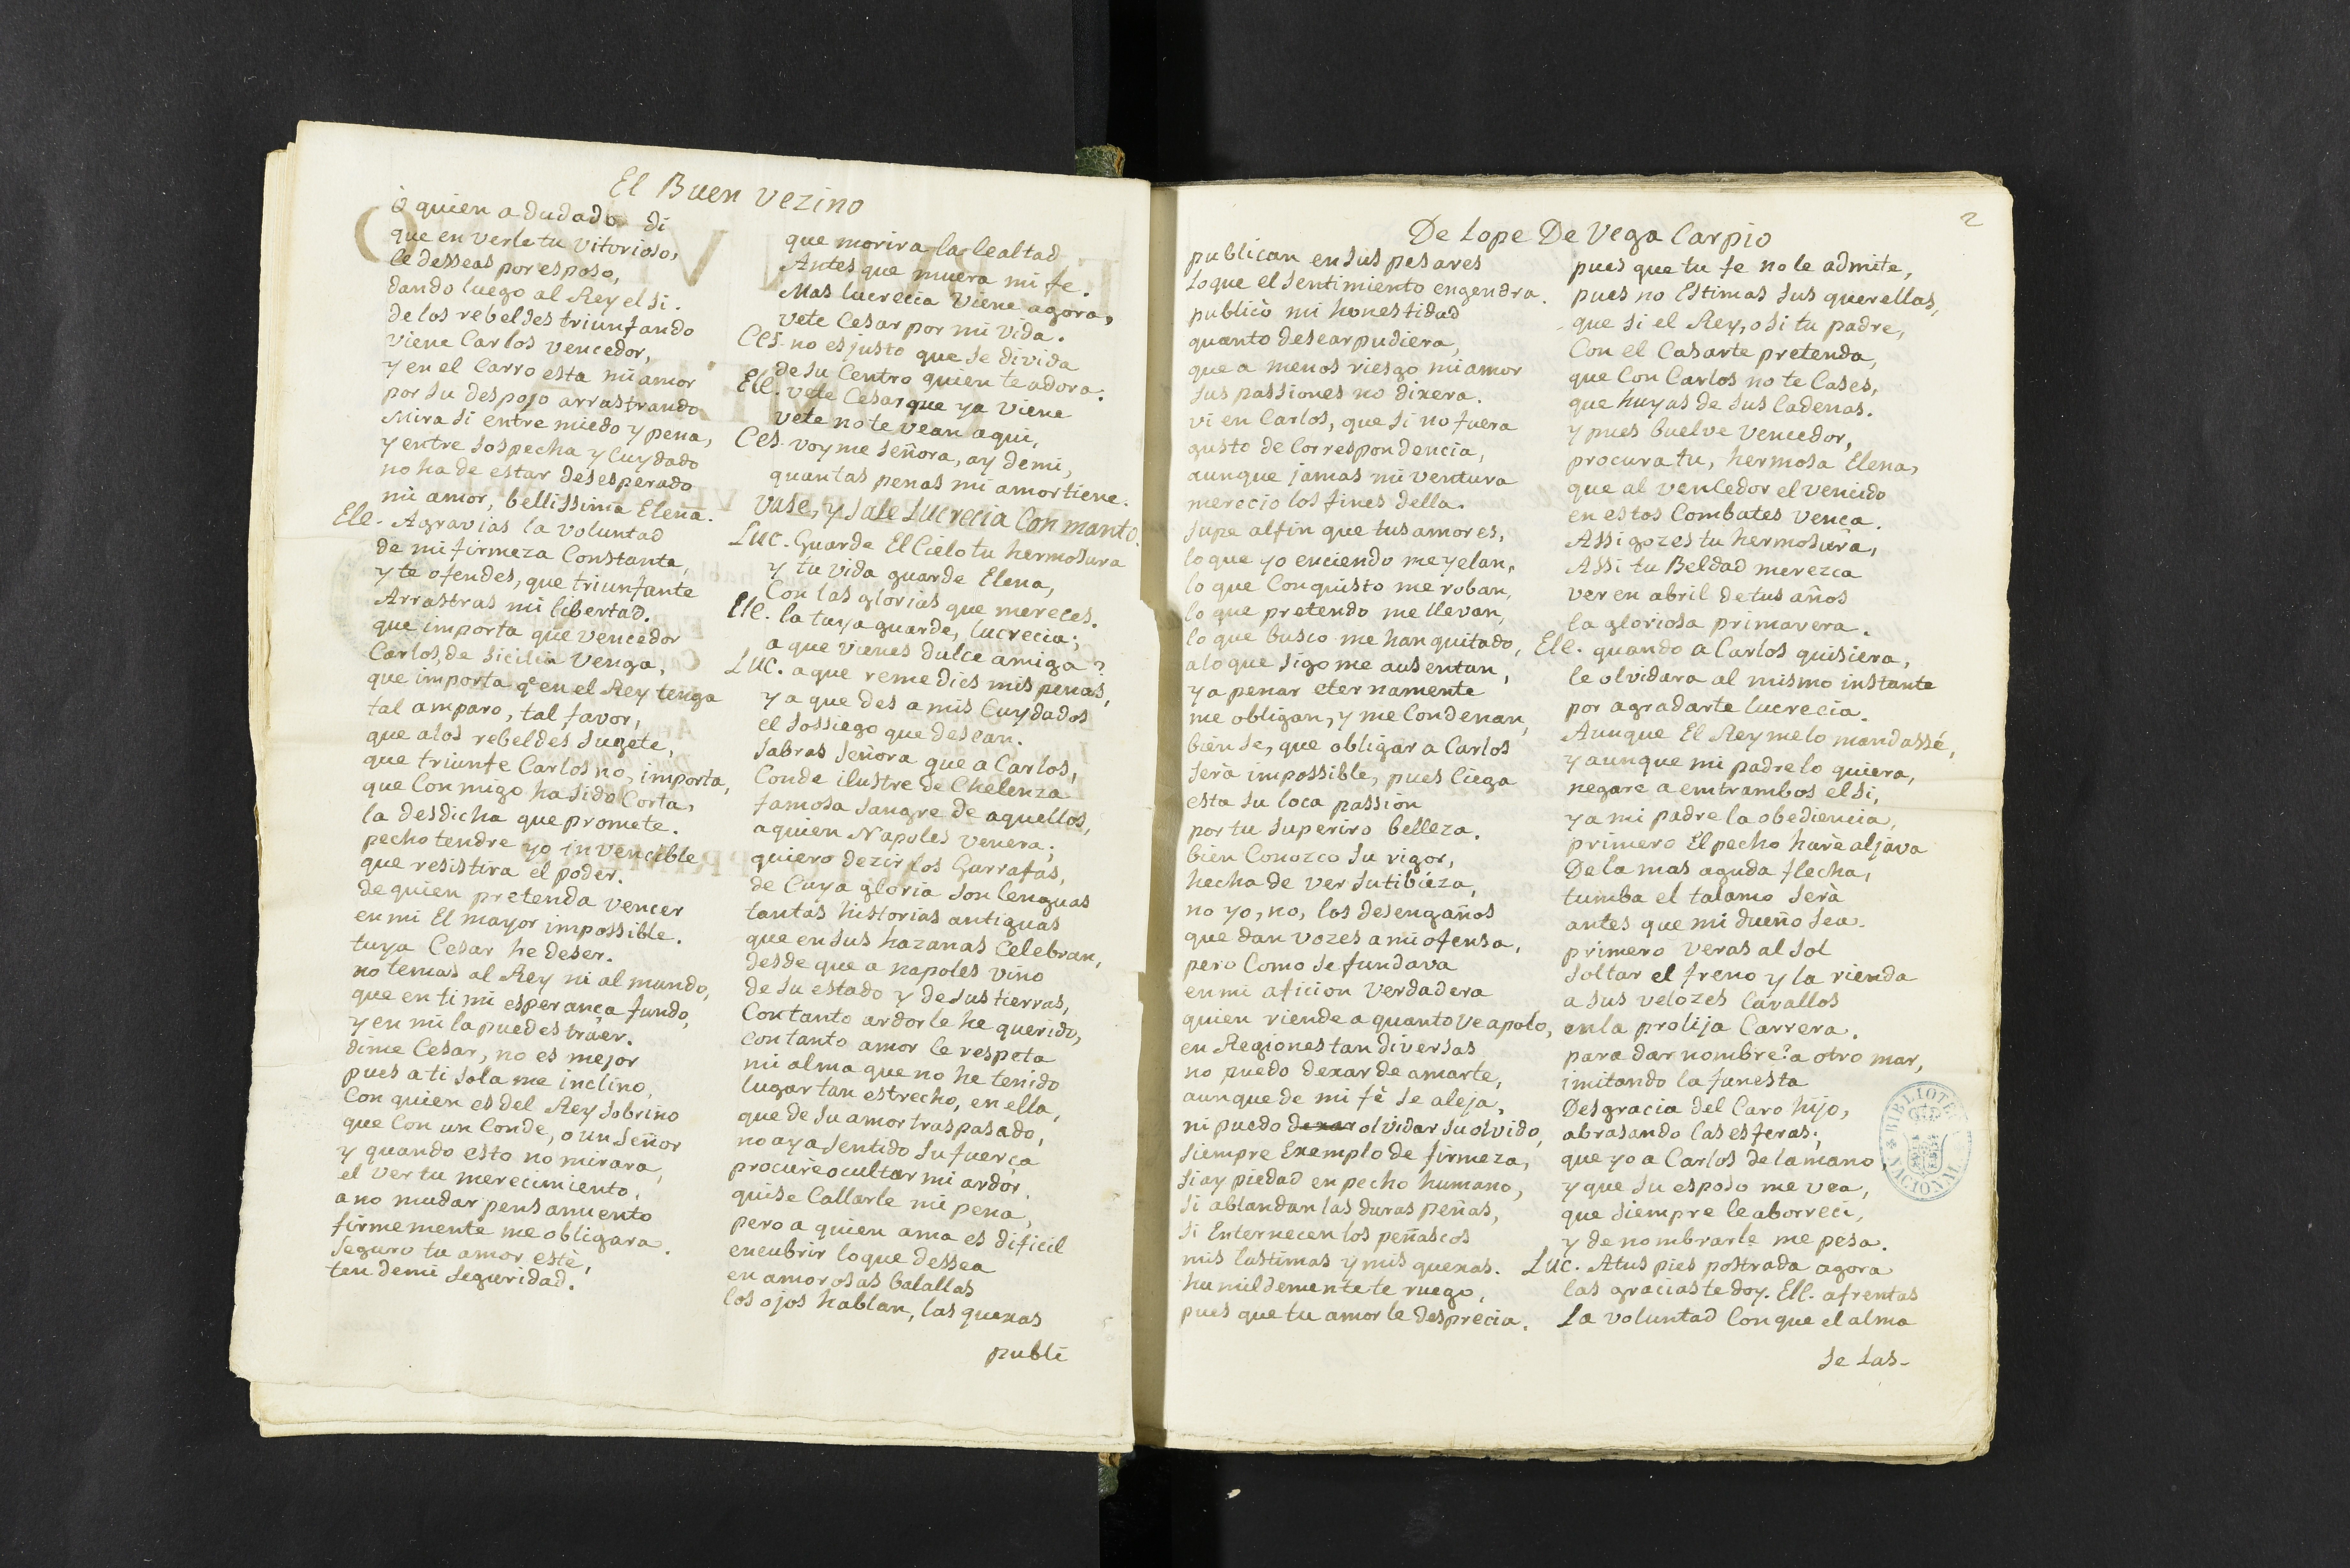 El Buen vezino
ò quien a dudado di
que en verle tu vitorioso,
le desseas por esposo,
dando luego al Rey el si.
de los rebeldes triunfando
viene Carlos vencedor,
y en el Carro esta mi amor
por su despojo arrastrando
Mira si entre miedo y pena,
y entre sospecha y Cuydado
no ha de estar desesperado
mi amor, bellissima Elena.
Ele. Agravias la voluntad
de mi firmeza Constante,
y te ofendes, que triunfante
Arrastras mi libertad.
que importa que vencedor
Carlos, de Sicilia Venga,
que importa q^e en el Rey tenga
tal amparo, tal favor,
que a los rebeldes sugete,
que triunfe Carlos no, importa,
que Con migo ha sido Corta,
la desdicha que promete.
pecho tendre yo invencible
que resistira el poder.
de quien pretenda vencer
en mi El mayor impossible.
tuya Cesar he de ser.
no temas al Rey ni al mundo,
que en ti mi esperança fundo,
y en mi la puedes traer.
dime Cesar, no es mejor
pues a ti sola me inclino,
Con quien es del Rey sobrino
que Con un Conde, o un señor
y quando esto no mirara,
el ver tu merecimiento,
a no mudar pensamiento
firmemente me obligara.
seguro tu amor estè,
ten de mi seguridad.
que morira la lealtad
Antes que muera mi fe.
Mas lucrecia viene agora,
vete Cesar por mi vida.
Ces. no es justo que se divida
de su Centro quien te adora.
Ell. vete Cesar que ya viene
vete no te vean aqui,
Ces. voy me señora, ay de mi,
quantas penas mi amor tiene.
vase, y sale Lucrecia Con manto.
Luc. Guarde El Cielo tu hermosura
y tu vida guarde Elena,
Con las glorias que mereces.
Ele. la tuya guarde, lucrecia;
a que vienes dulce amiga?
Luc. a que remedies mis penas,
y a que des a mis Cuydados
el sossiego que desean.
sabras señora que a Carlos,
Conde ilustre de Chelenza
famosa sangre de aquellos,
a quien Napoles venera;
quiero dezir los Garrafas,
de Cuya gloria son lenguas
tantas historias antiguas
que en sus hazanas Celebran,
desde que a napoles vino
de su estado y de sus tierras,
Con tanto ardor le he querido,
Con tanto amor le respeta
mi alma que no he tenido
lugar tan estrecho, en ella,
que de su amor traspasado,
no aya sentido su fuerça
procurè ocultar mi ardor,
quise Callarle mi pena,
pero a quien ama es dificil
encubrir lo que dessea
en amorosas batallas
los ojos hablan, las quexas
publi
2
De Lope De Vega Carpio
publican en sus pesares
Lo que el sentimiento engendra.
publicò mi honestidad
quanto desear pudiera,
que a menos riesgo mi amor
sus passiones no dixera.
vi en Carlos, que si no fuera
gusto de Correspondencia,
aunque jamas mi ventura
merecio los fines della.
supe al fin que tus amores,
lo que yo enciendo me yelan,
lo que Conquisto me roban,
lo que pretendo me llevan,
lo que busco me han quitado,
a lo que sigo me ausentan,
y a penar eternamente
me obligan, y me Condenan,
bien se, que obligar a Carlos
serà impossible, pues Ciega
esta su loca passion
por tu superiro belleza.
bien Conozco su rigor,
hecha de ver su tibieza,
no yo, no, los desengaños
que dan vozes a mi ofensa,
pero Como se fundava
en mi aficion verdadera
quien riende a quanto ve apolo,
en Regiones tan diversas
no puedo dexar de amarte,
aunque de mi fè se aleja,
ni puedo dexar olvidar su olvido,
siempre Exemplo de firmeza,
si ay piedad en pecho humano,
si ablandan las duras peñas,
si Enternecen los peñascos
mis lastimas y mis quexas.
humildemente te ruego,
pues que tu amor le desprecia.
pues que tu fe no le admite,
pues no Estimas sus querellas,
que si el Rey, o si tu padre,
Con el Casarte pretenda,
que Con Carlos no te Cases,
que huyas de sus Cadenas.
y pues buelve vencedor,
procura tu, hermosa Elena,
que al vencedor el vencido
en estos Combates vença.
Assi gozes tu hermosura,
Assi tu Beldad merezca
ver en abril de tus años
la gloriosa primavera.
Ele. quando a Carlos quisiera,
le olvidara al mismo instante
por agradarte lucrecia.
Aunque El Rey me lo mandassé,
y aunque mi padre lo quiera,
negare a entrambos el si,
y a mi padre la obediencia,
primero El pecho harè aljava
De la mas aguda flecha,
tumba el talamo serà
antes que mi dueño sea.
primero veras al sol
soltar el freno y la rienda
a sus velozes Cavallos
en la prolija Carrera.
para dar nombre? a otro mar,
imitando la funesta
Desgracia del Caro hijo,
abrasando las esferas;
que yo a Carlos de la mano,
y que su esposo me vea,
que siempre le aborreci,
y de nombrarle me pesa.
Luc. A tus pies postrada agora
las gracias te doy. Ell. afrentas
La voluntad Con que el alma
se las-
BIBLIOTECA NACIONAL